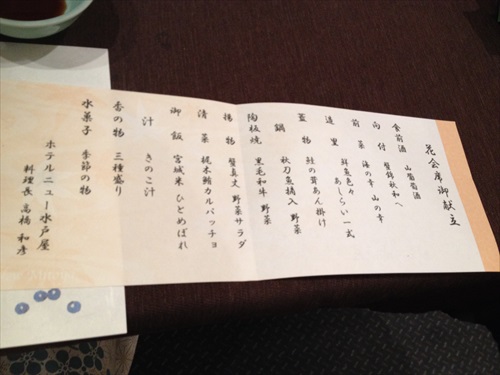 花会席御献立
食前酒 山葡萄酒
向付 蟹錦秋和へ
前菜 海の幸 山の幸
造里 鮮魚色々 あしらい一式
蓋物 鮭の茸あん掛け
鍋 秋刀魚摘入 野菜
陶板焼 黒毛和牛 野菜
揚物 蟹真丈 野菜サラダ
清菜 梶木鮪カルパッチョ
御飯 宮城米 ひとめぼれ
汁 きのこ汁
香の物 三種盛り
水菓子 季節の物
ホテルニュー水戸屋
料理長 高橋 和彦